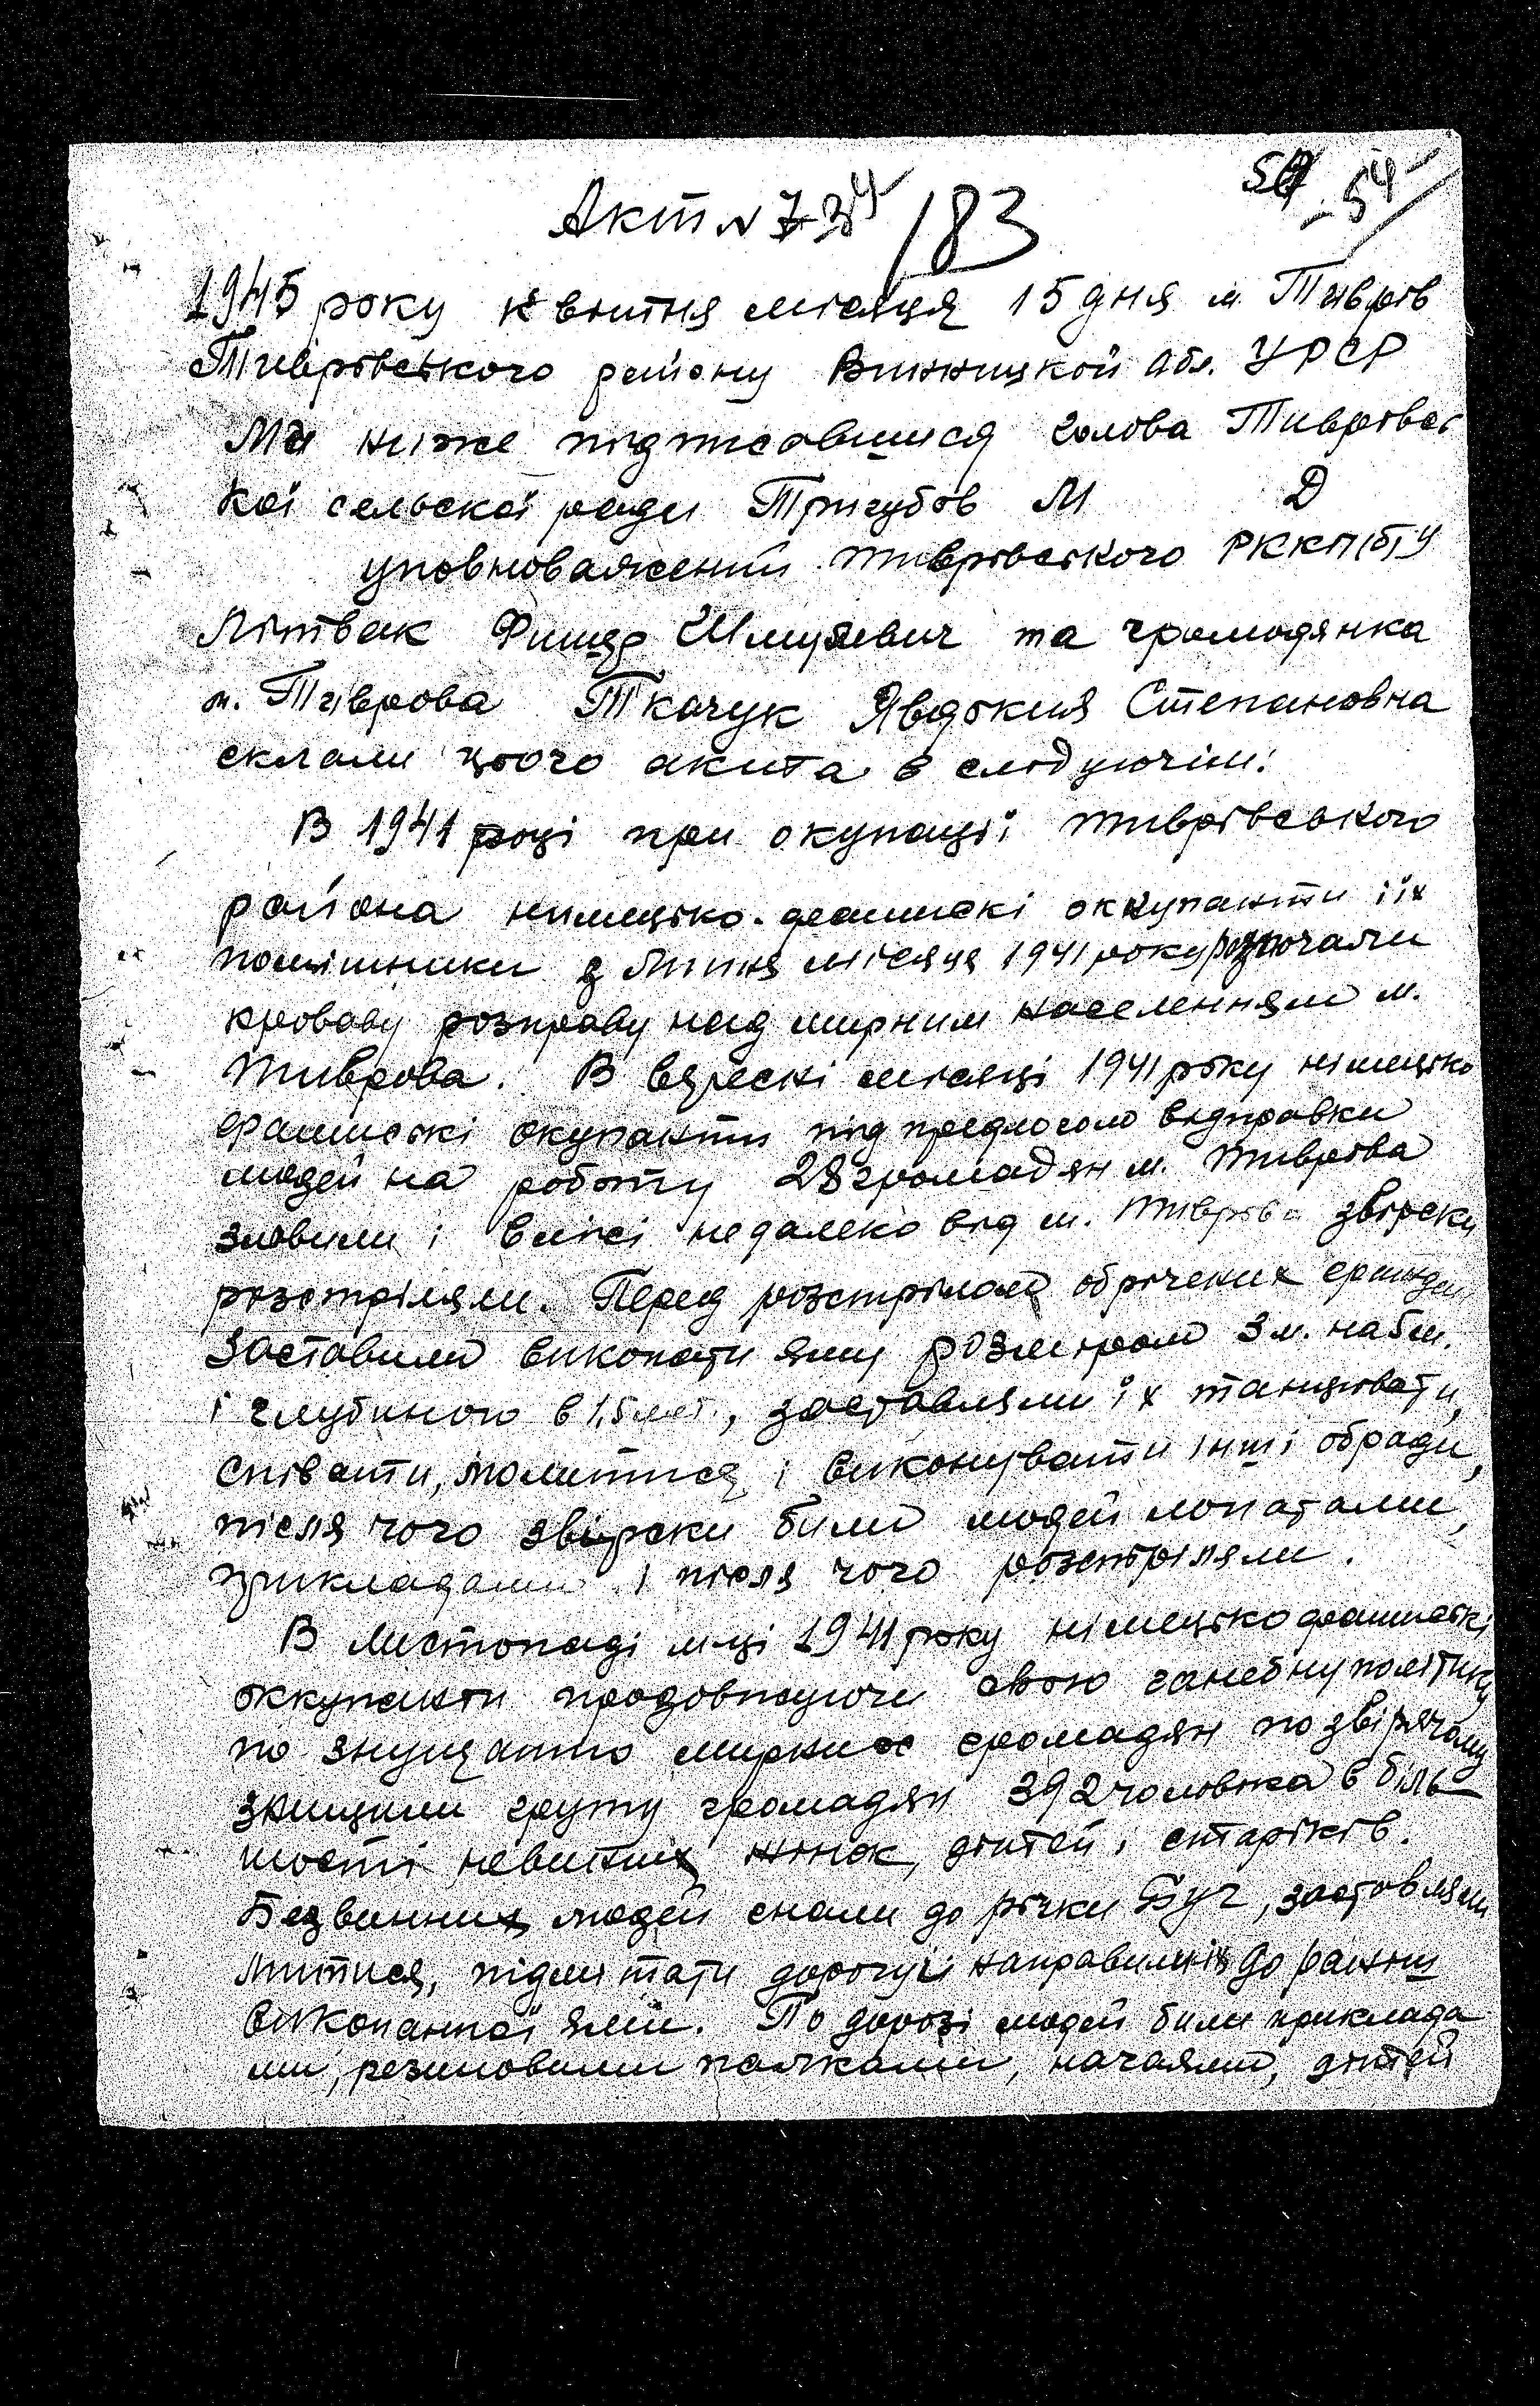 Акт № 7
183
54
1945 року квітня місяця 15 дня м. Тиврів
Тиврівського району Винницкой Обл. УРСР
Ми ниже підписавшися голова Тиврівсь
кої сельскої ради Тригубов М Д
уповноважений Тиврівського РККП(б)У
Літвак Фишер Шмулевич та громодянка
м. Тиврова Ткачук Явдокия Степановна
склали цього акита в слідуючім:
В 1941 році при окупації Тиврівського
району нимецько-фашиські оккупанти і їх
помішники з Липня місяця 1941 року розпочали
кроваву розправу над мирним населенням м.
Тиврова. В вересні місяці 1941 року німецько
фашиські окупанти під предлогом відправки
людей на роботу 28 громадян м. Тиврова
зловили і в лісі недалеко від м. Тиврова звірски
розстріляли. Перед розстрілом обречених
заставили викопати яму розміром 3 м. на 6 м.
і глубиною в 1,5 мет., заставляли їх танцювати,
співати, молитися і виконувати інші обряди,
після чого звірски били людей лопатами,
прикладами і після чого розстріляли.
В Листопаді м-ці 1941 року німецько фашиські
оккупанти продовжуючи свою ганебну політику
по знущанню мирних громадян по звірячому
знищили групу громадян 392 чоловіка в біль
шості невинних жінок, дітей і стариків.
Безвинних людей гнали до річки Буг, заставляли
митися, підмітати дорогу і направили їх до раніш
викопанної ями. По дорозі людей били приклада
ми, резиновими палками, нагаями, дітей